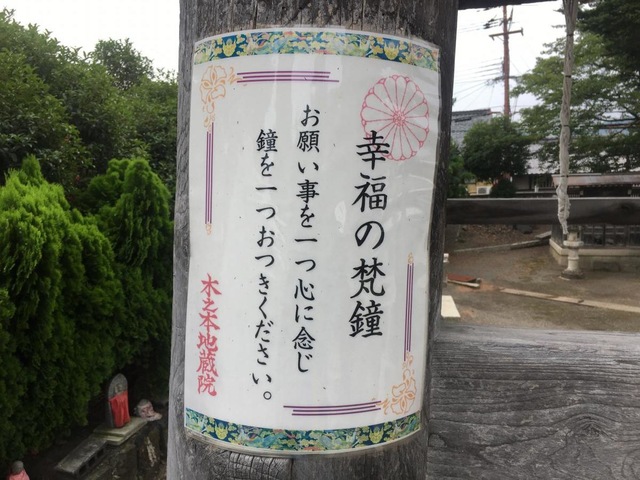 幸福の梵鐘
お願い事を一つ心に念じ
鐘を一つおつきください。
木之本地蔵院